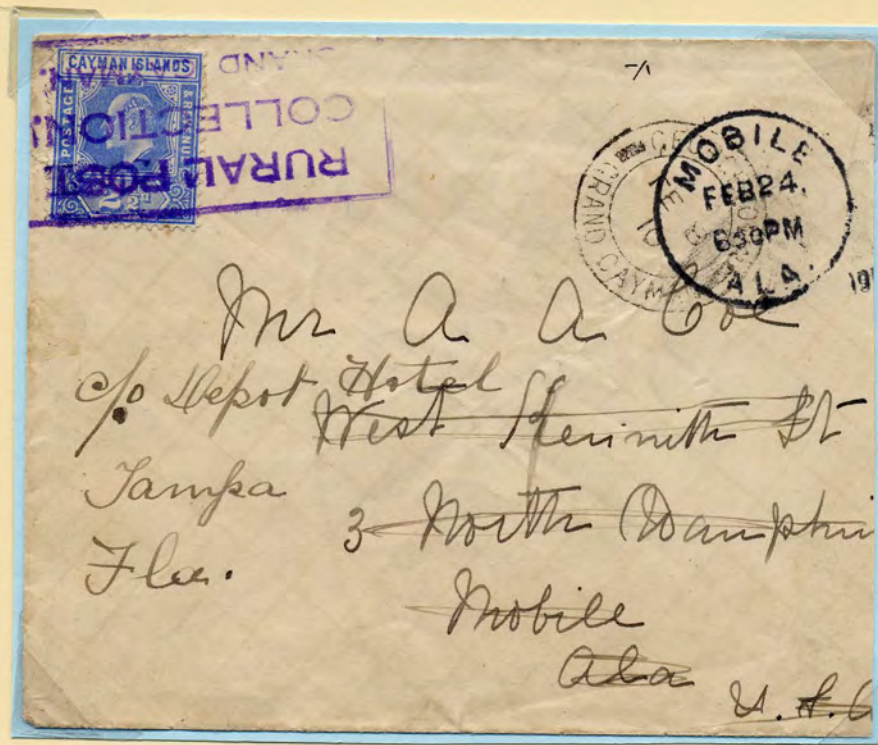 CAYMAN ISLANDS
POSTAGE
& REVENUE
2½d
RURAL POST
COLLECTION.
GRAND CAYMAN.
GEORGETOWN
GRAND CAYMAN
FE 8
10
MOBILE
FEB 24.
630PM
ALA.
191
Mr A A Coe
c/o Depot Hotel
West St
Tampa
3 North Dauphin
Fla.
Mobile
Ala
U.S.A